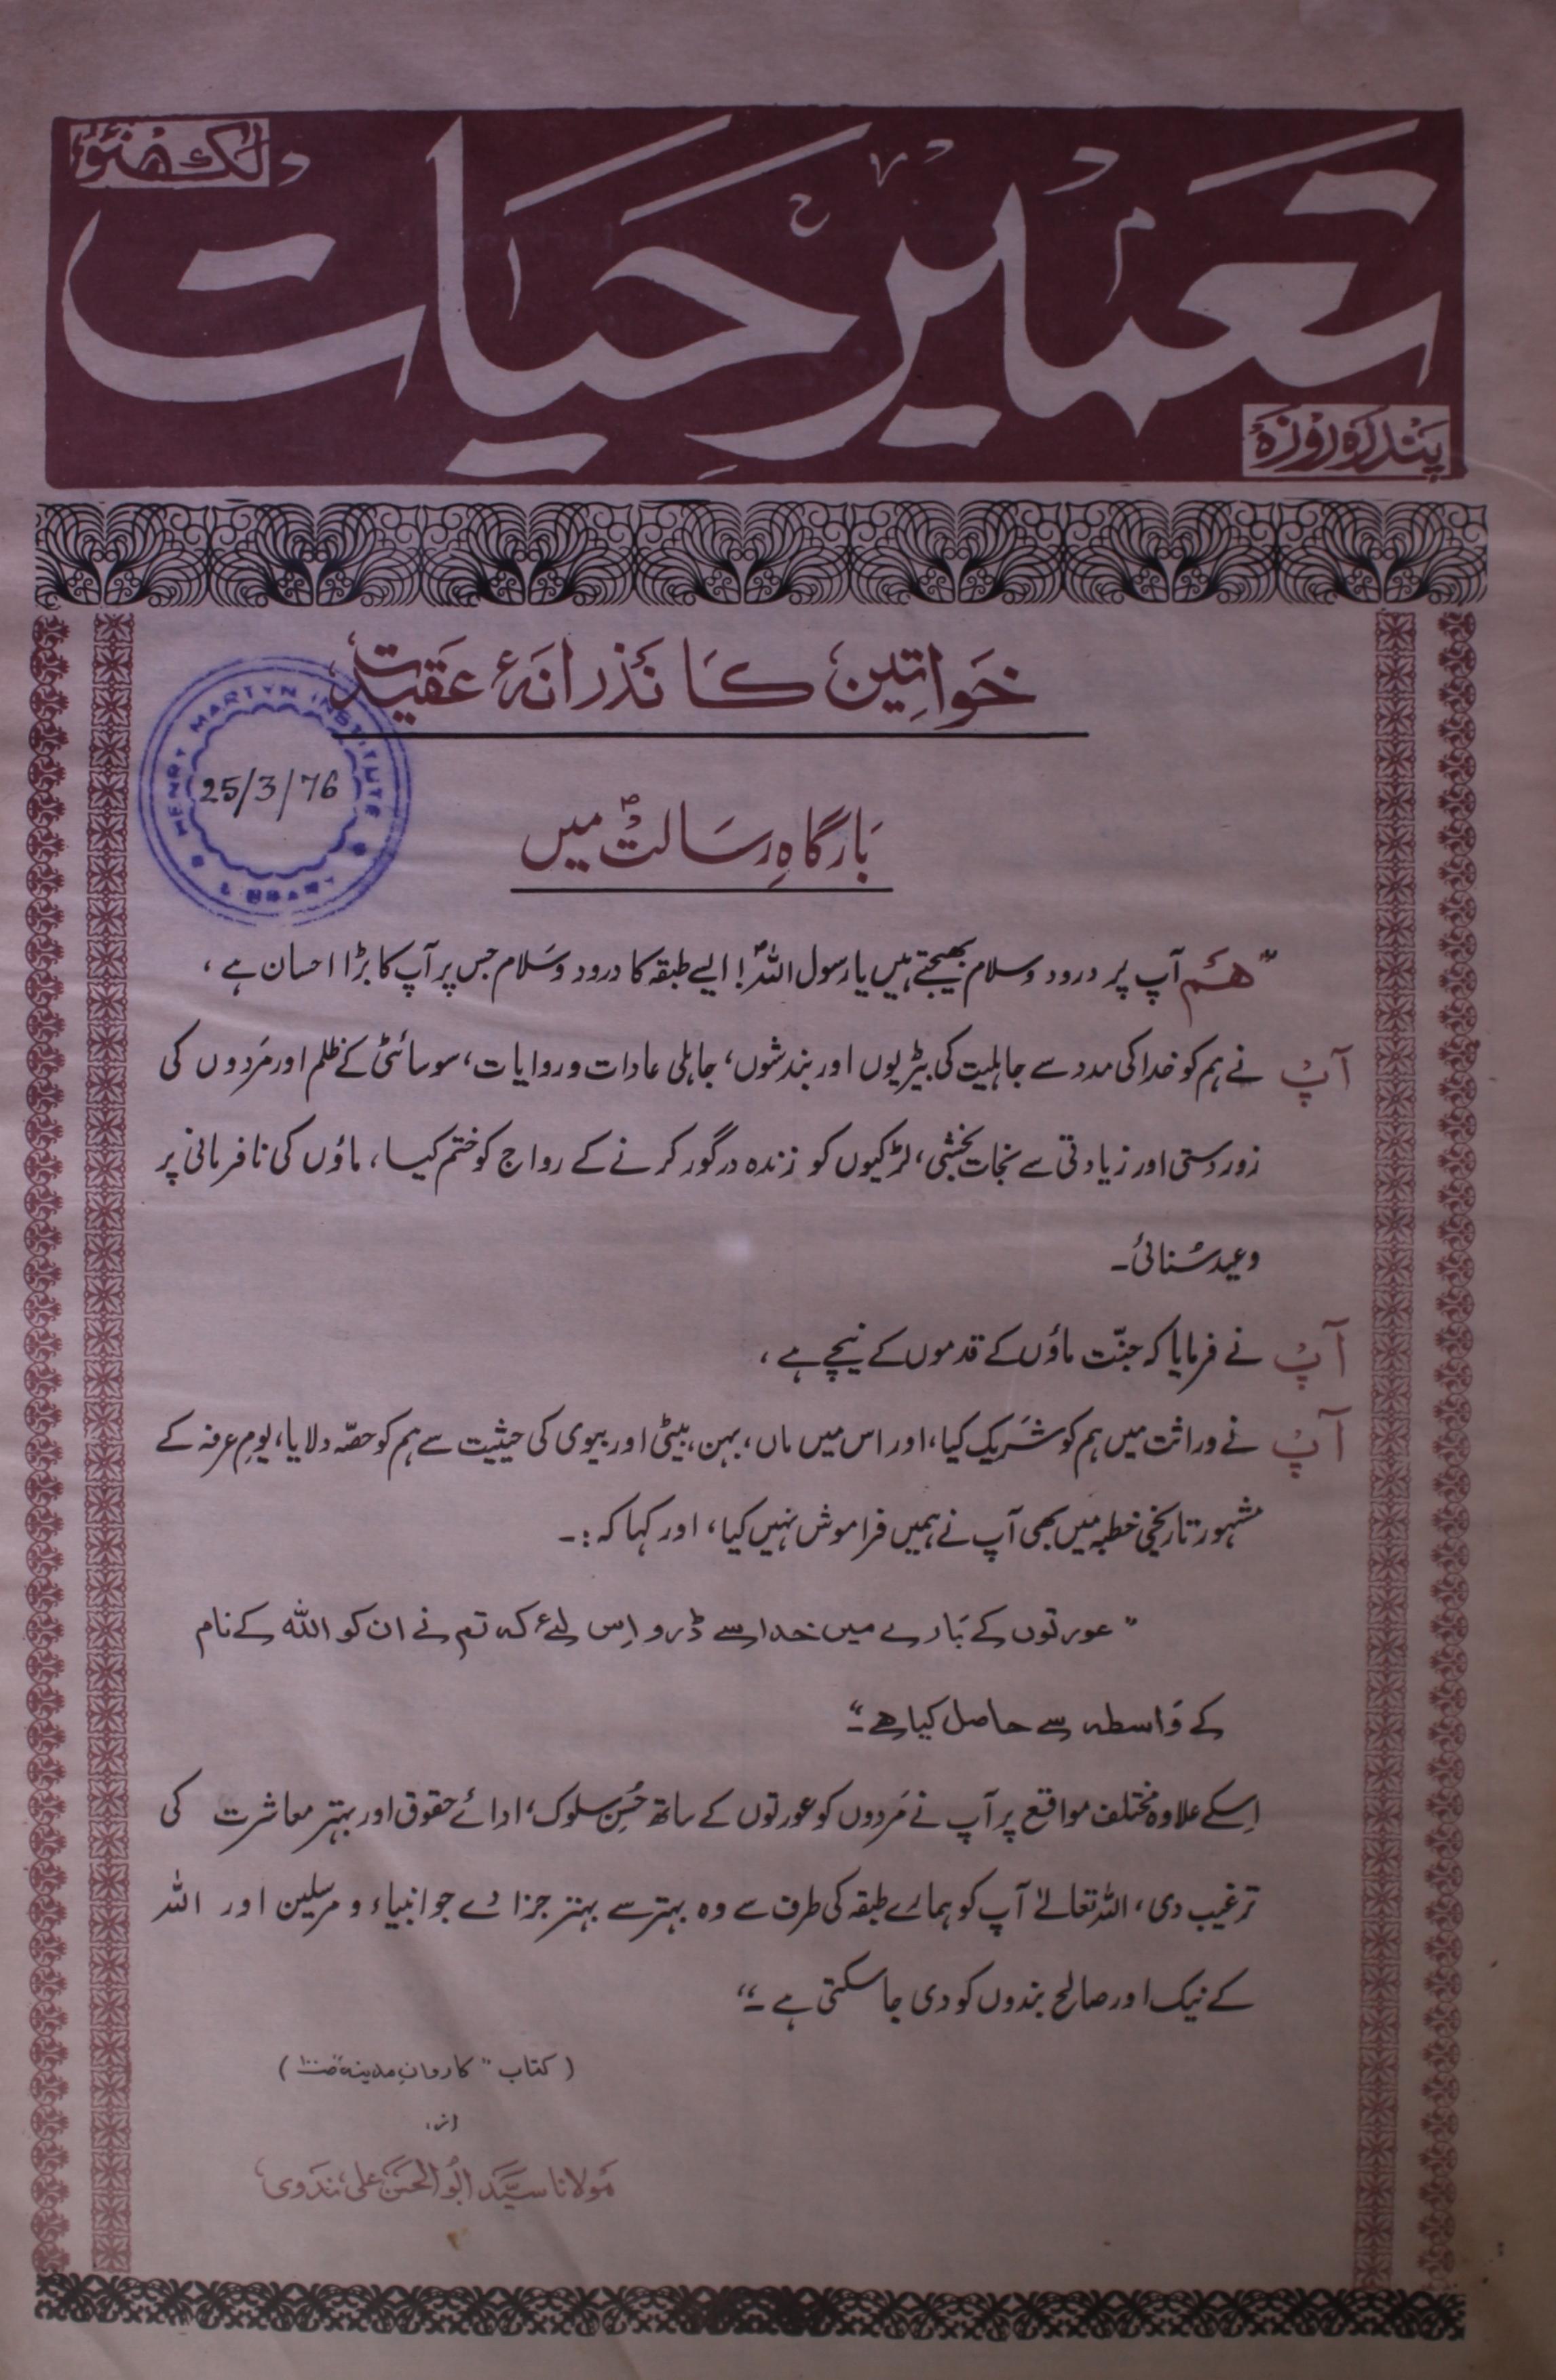 لکھنؤ
تعمیر حیات
پندرہ روزہ
خواتین کا نذرانۂ عقیدت
HENRY MARTYN INSTITUTE
25/3/76
LIBRARY
بارگاہِ رسالتؐ میں
"ہم آپ پر درود و سلام بھیجتے ہیں یا رسول اللہؐ! ایسے طبقہ کا درود و سلام جس پر آپ کا بڑا احسان ہے،
آپؐ نے ہم کو خدا کی مدد سے جاہلیت کی بیڑیوں اور بندشوں، جاہلی عادات و روایات، سوسائٹی کے ظلم اور مردوں کی
زور دستی اور زیادتی سے نجات بخشی، لڑکیوں کو زندہ درگور کرنے کے رواج کو ختم کیا، ماؤں کی نافرمانی پر
وعید سُنائی۔
آپؐ نے فرمایا کہ جنّت ماؤں کے قدموں کے نیچے ہے،
آپؐ نے وراثت میں ہم کو شریک کیا، اور اس میں ماں، بہن، بیٹی اور بیوی کی حیثیت سے ہم کو حصّہ دلایا، یومِ عرفہ کے
مشہور تاریخی خطبہ میں بھی آپ نے ہمیں فراموش نہیں کیا، اور کہا کہ:۔
"عورتوں کے بارے میں خدا سے ڈرو اِس لئے کہ تم نے ان کو اللہ کے نام
کے واسطہ سے حاصل کیا ہے۔"
اِسکے علاوہ مختلف مواقع پر آپ نے مَردوں کو عورتوں کے ساتھ حُسنِ سلوک، ادائے حقوق اور بہتر معاشرت کی
ترغیب دی، اللہ تعالےٰ آپ کو ہمارے طبقہ کی طرف سے وہ بہتر سے بہتر جزا دے جو انبیاء و مرسلین اور اللہ
کے نیک اور صالح بندوں کو دی جا سکتی ہے۔"
(کتاب "کاروانِ مدینہ" صـ۱۰۰)
از،
مولانا سیّد ابوالحسن علی ندوی